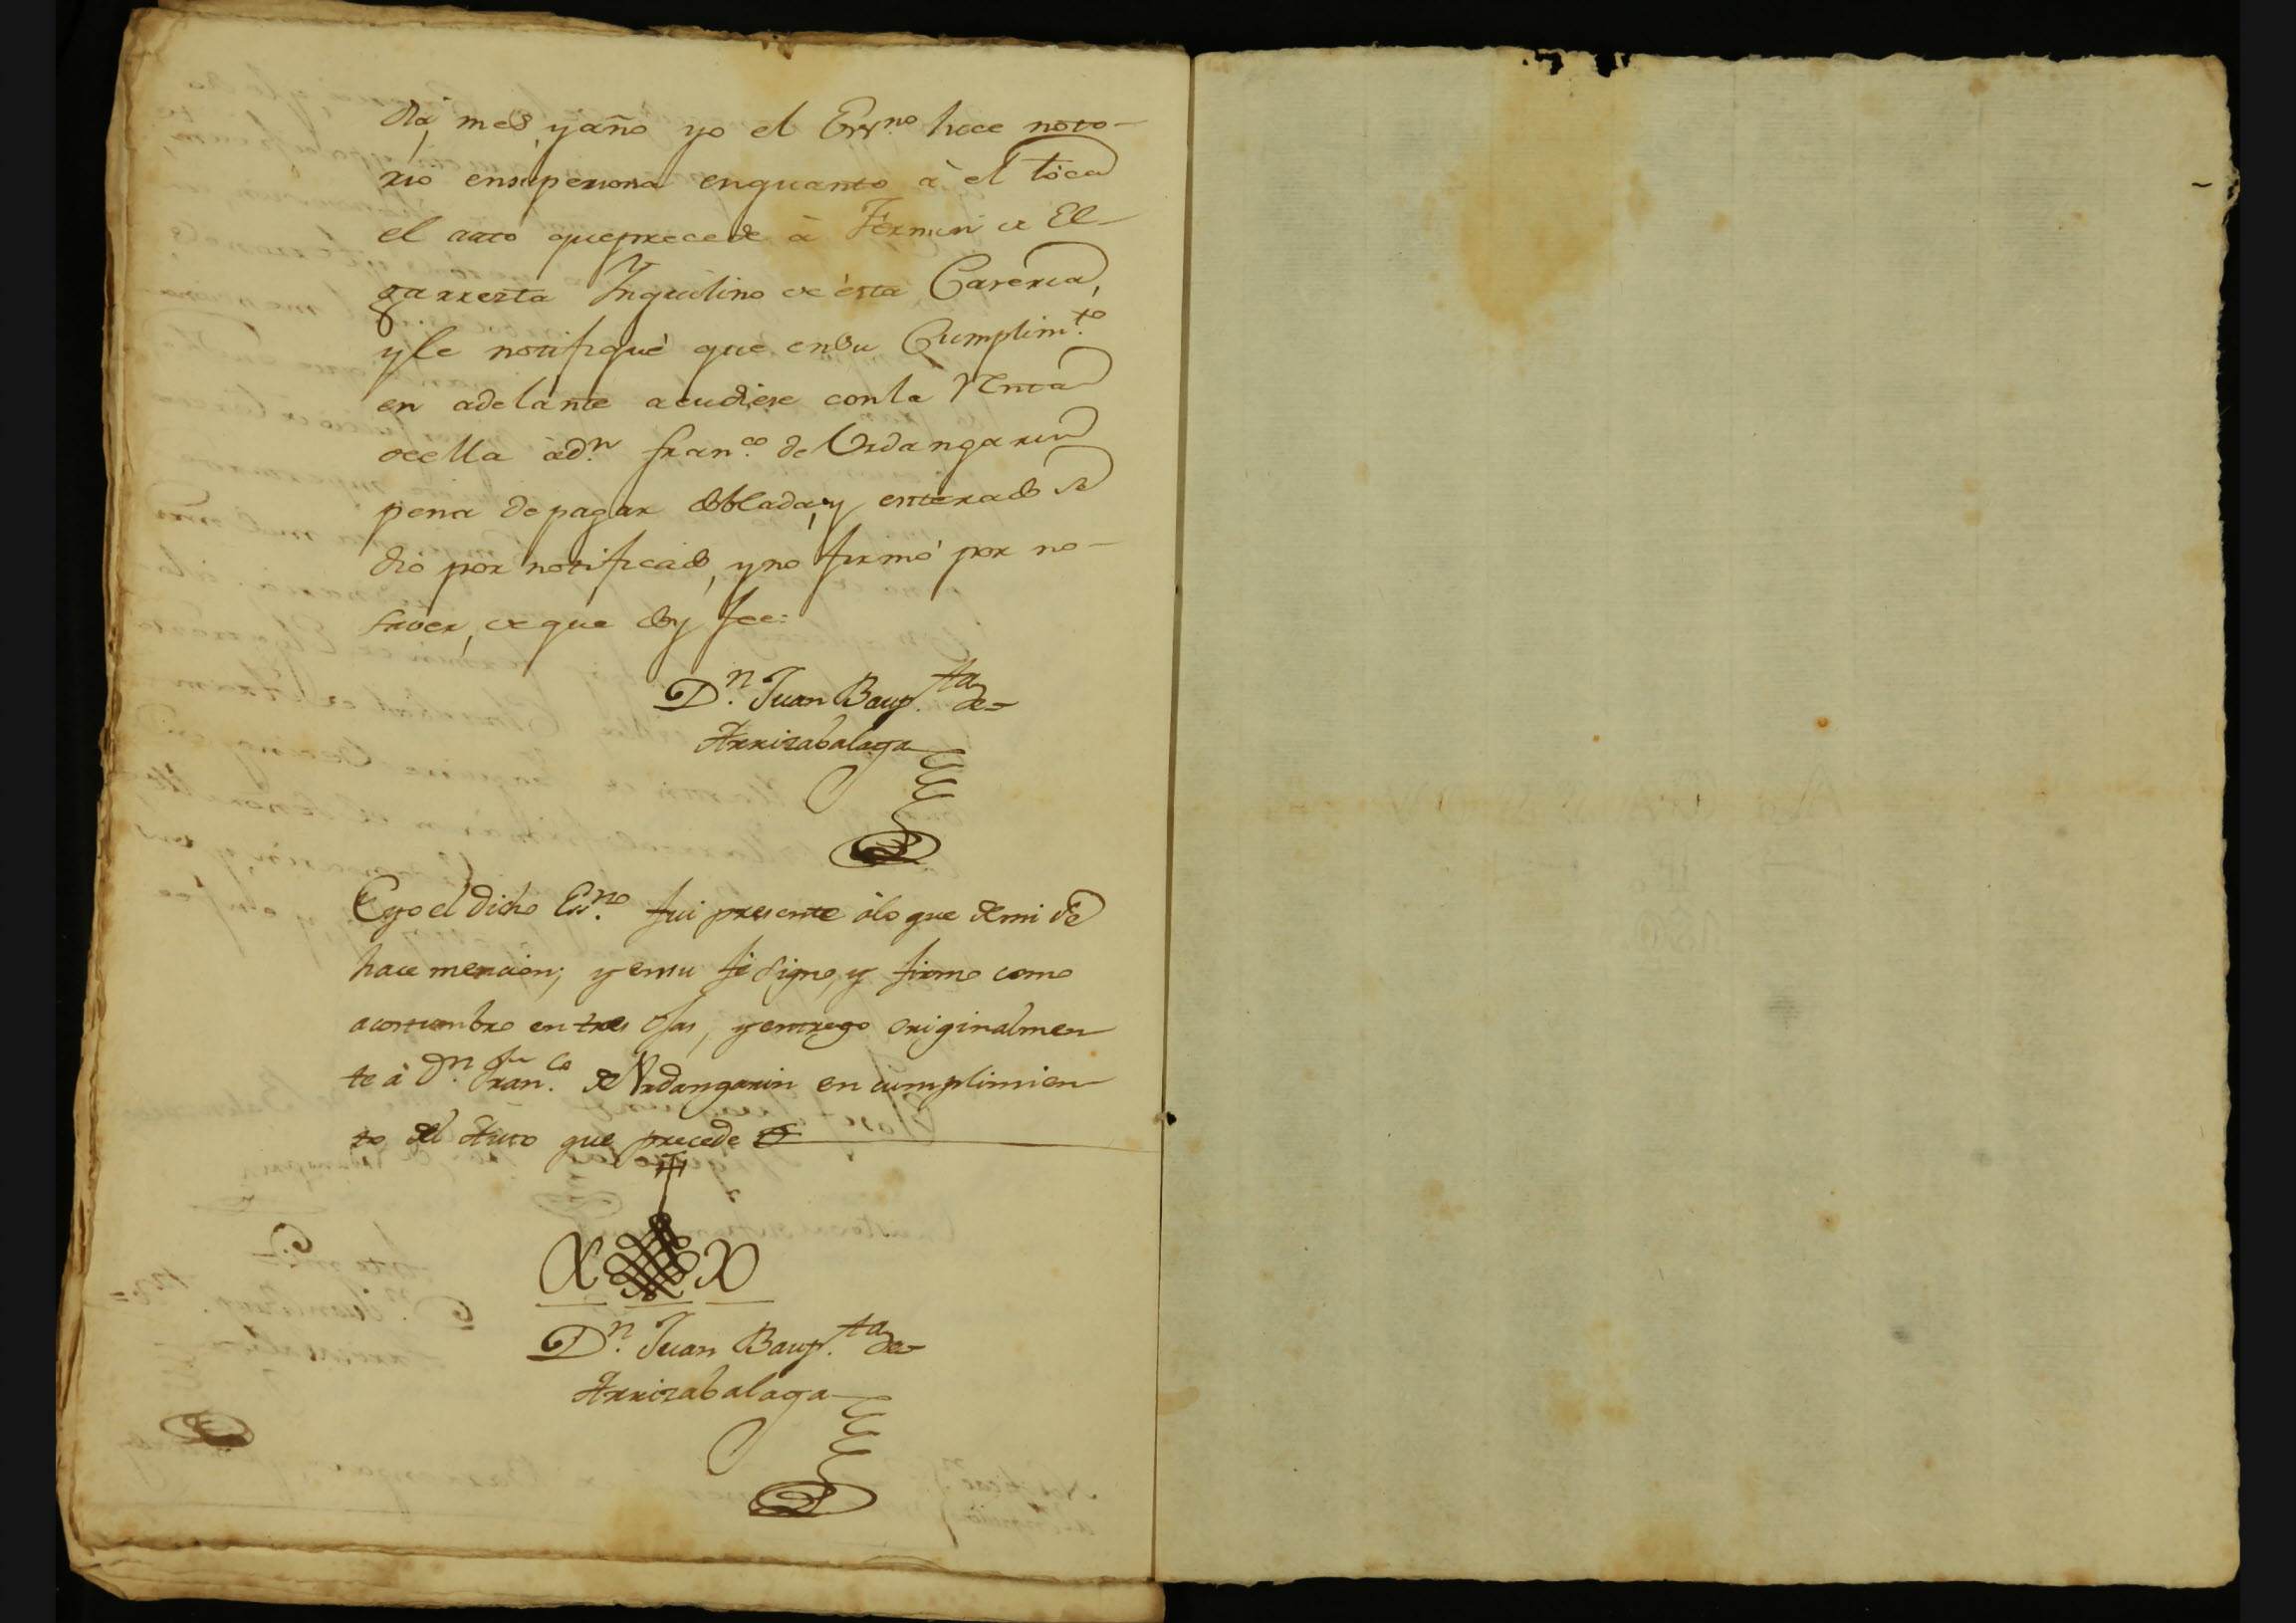 dia, mes, y año yo el Ess.no hice noto-
rio ensupersona enquanto à el toca
el auto queprecede à Fermin de El-
garresta Ynquilino de ésta Caseria,
yle notifiqué que ensu Cumplim.to
en adelante acudiese conla Renta
deella àd.n fran.co de Urdangarin
pena depagar doblada, y enterado se
dio por notificado, yno firmó por no-
saver, de que doy fee:
D.n Juan Baup.ta de
Arrizabalaga
E yo el dicho Ess.no fui presente àlo que demi se
hace mencion; y ensu fé signo, y firmo como
acostumbro en tres ojas, y entrego originalmen
te à D.n Fran.co de Urdangarin en cumplimien
to del Auto que precede
D.n Juan Baup.ta de
Arrizabalaga